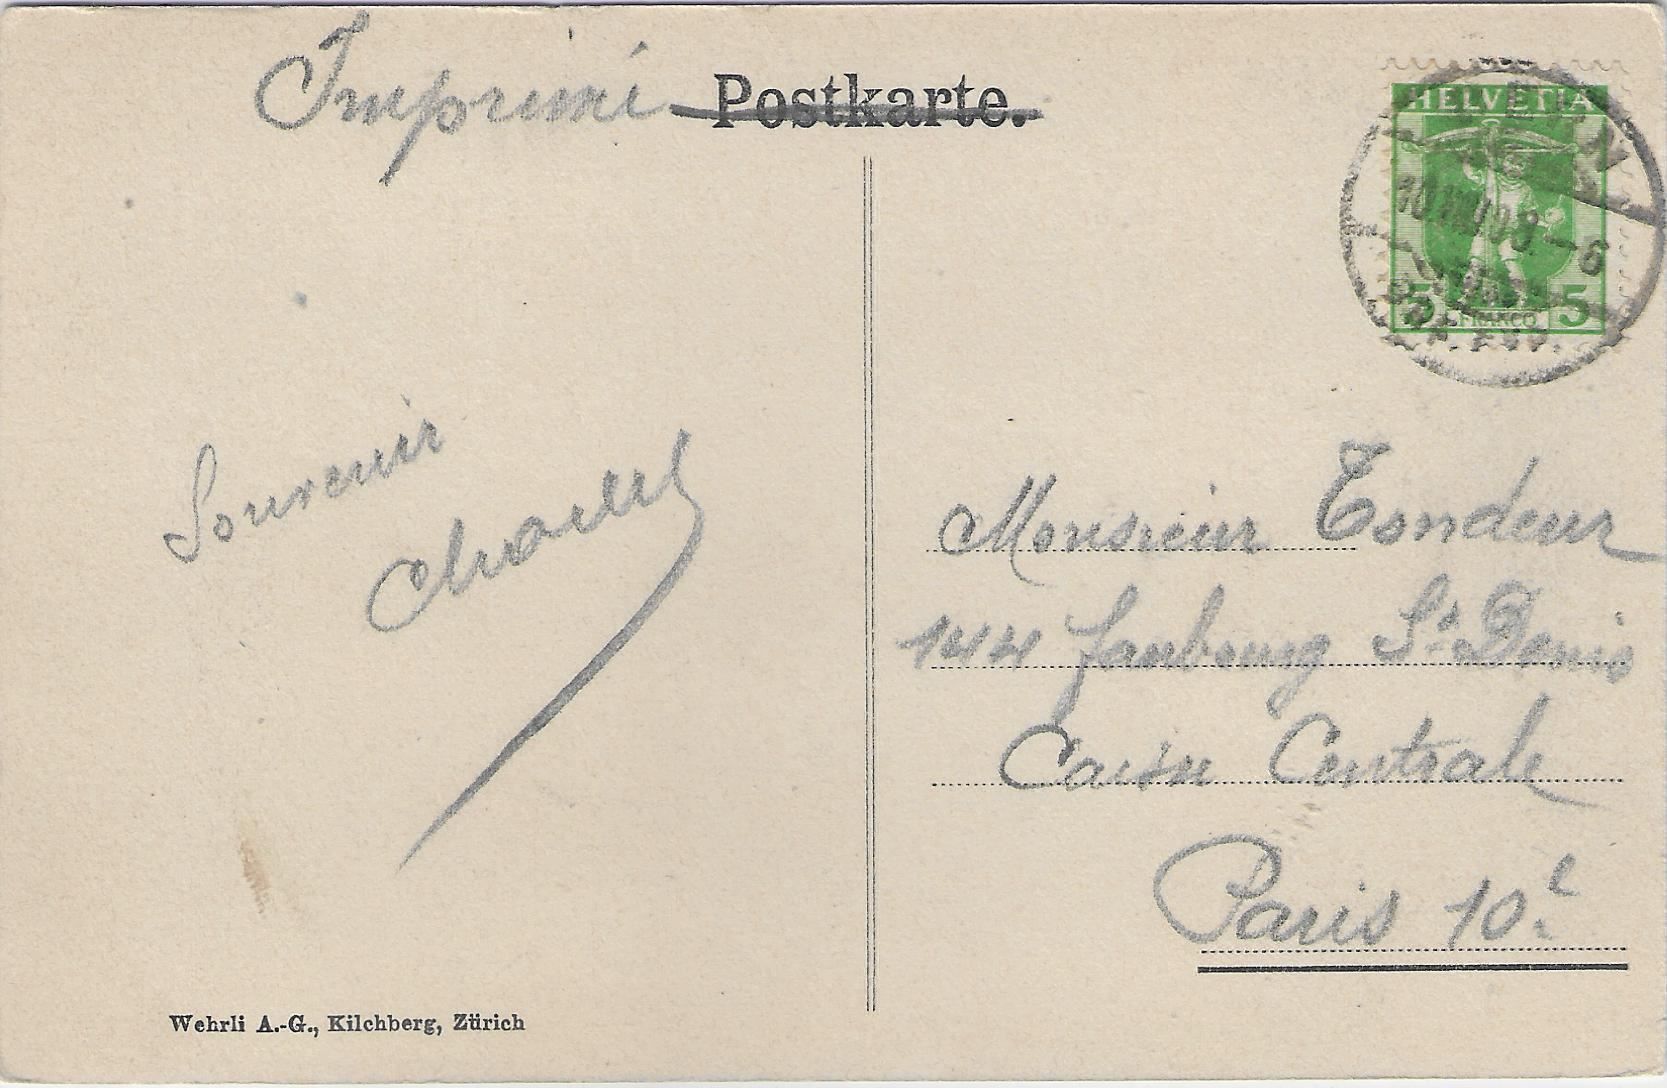 Imprimé
Postkarte.
HELVETIA
BERN
5 FRANCO 5
BRF. EXP.
Souvenir
Monsieur Tondeur
144 faubourg St. Denis
Caisse Centrale
Paris 10e
Wehrli A.-G., Kilchberg, Zürich